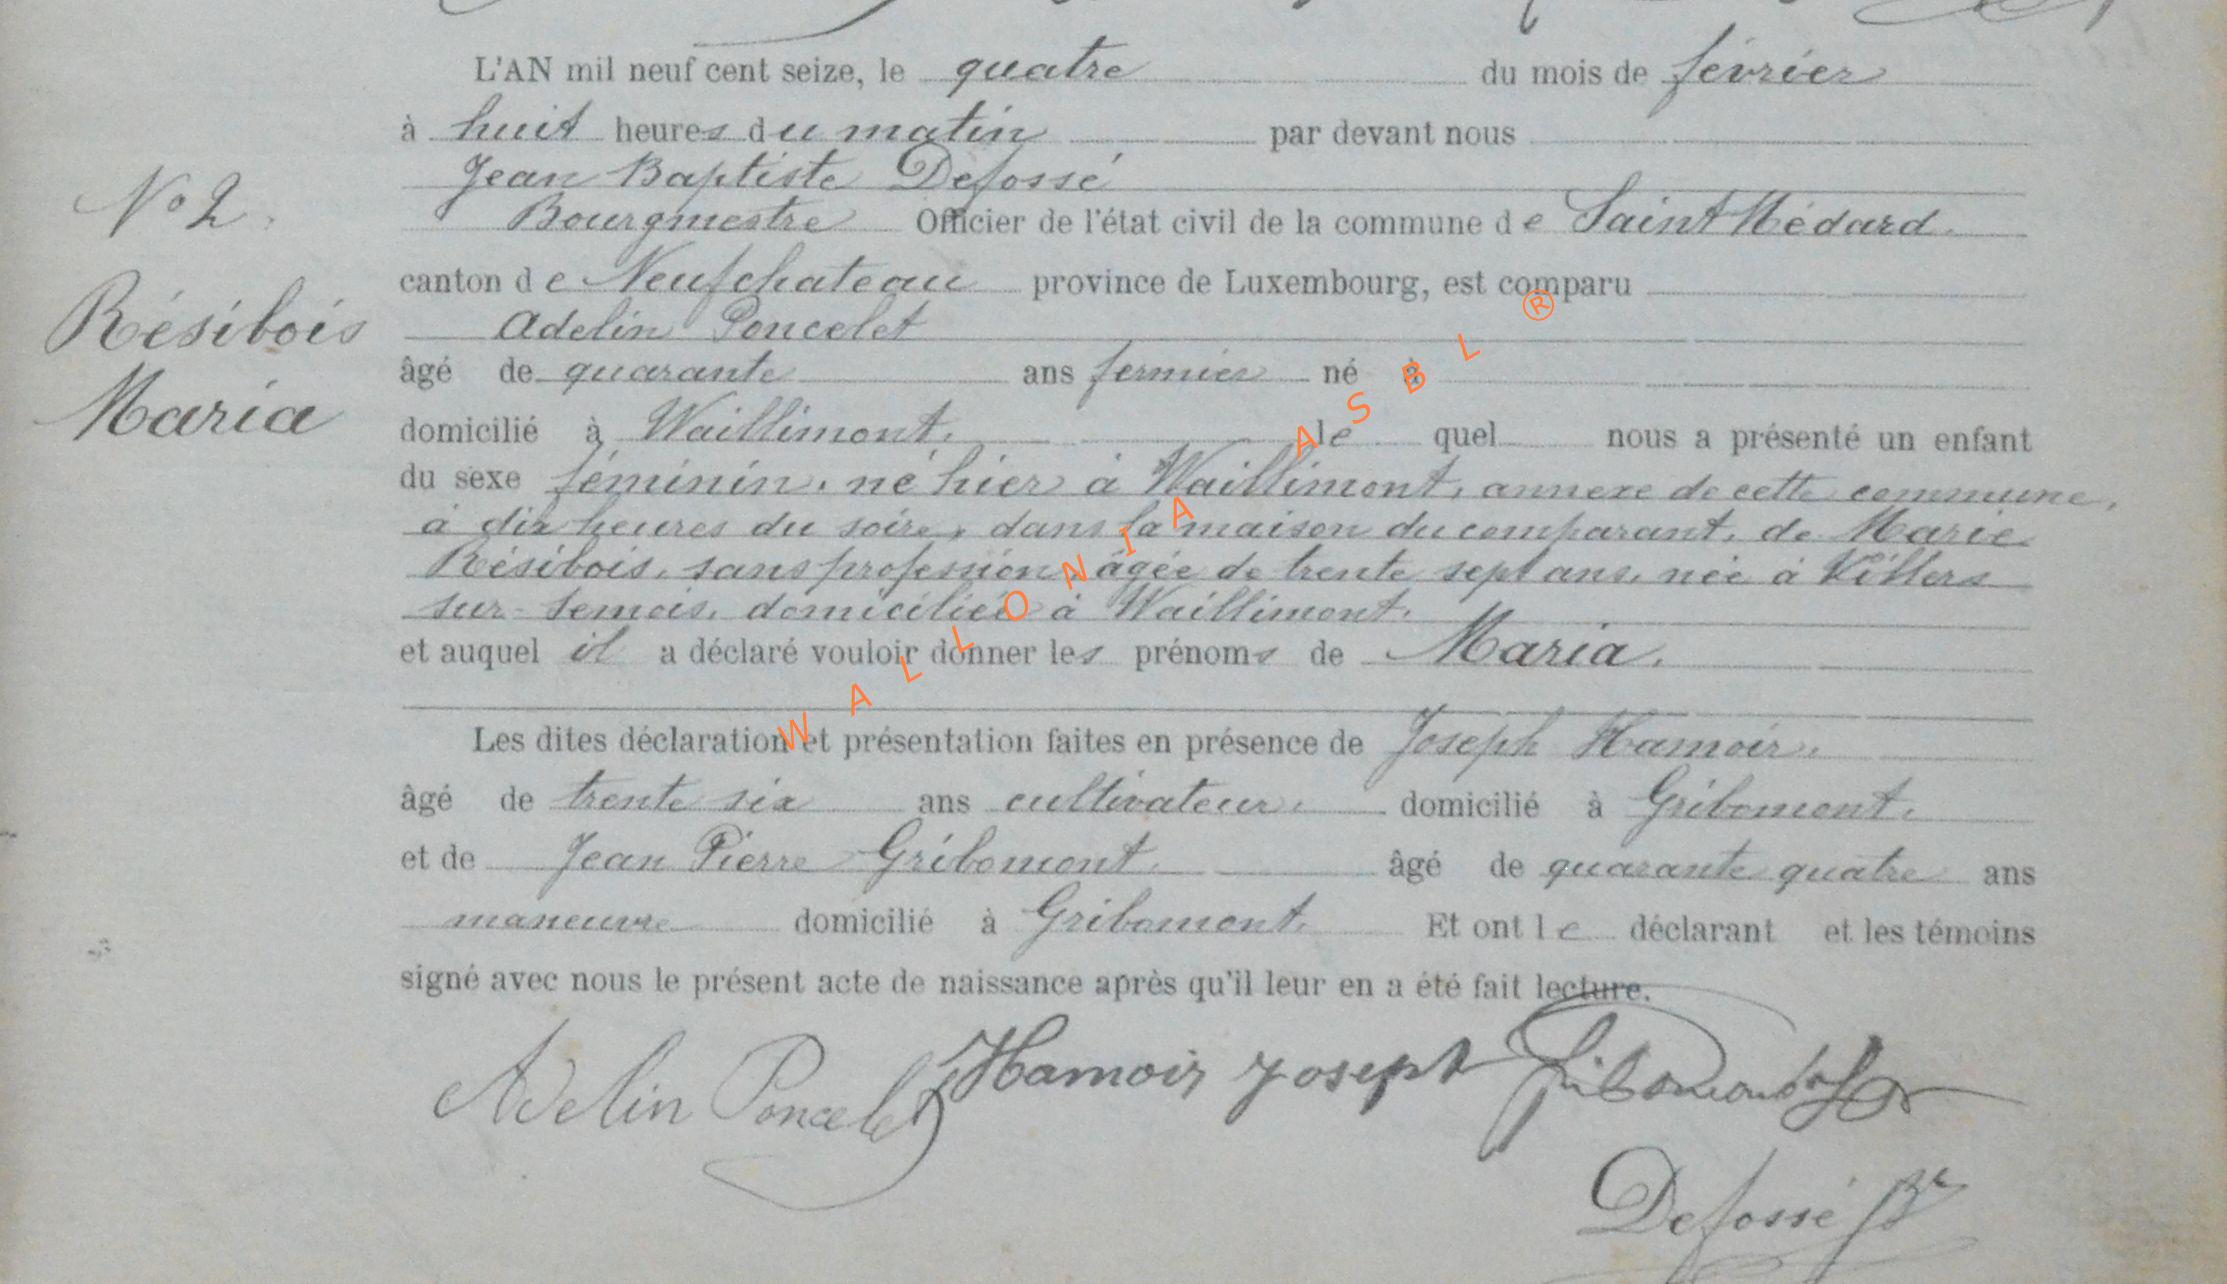 L'AN mil neuf cent seize, le quatre du mois de février
à huit heures du matin par devant nous
Jean Baptiste Defossé
N° 2.
Bourgmestre Officier de l'état civil de la commune de Saint Médard.
canton de Neufchateau province de Luxembourg, est comparu
Résibois
Adelin Poncelet
âgé de quarante ans fermier né à
Maria
domicilié à Waillimont. le quel nous a présenté un enfant
du sexe féminin, né hier à Waillimont, annexe de cette commune,
à dix heures du soire, dans la maison du comparant, de Marie
Résibois, sans profession, âgée de trente sept ans, née à Villers
sur-Semois, domiciliée à Waillimont.
et auquel il a déclaré vouloir donner les prénoms de Maria.
Les dites déclaration et présentation faites en présence de Joseph Hamoir.
âgé de trente six ans cultivateur. domicilié à Gribomont.
et de Jean Pierre Gribomont âgé de quarante quatre ans
maneuvre domicilié à Gribomont. Et ont le déclarant et les témoins
signé avec nous le présent acte de naissance après qu'il leur en a été fait lecture.
Adelin Poncelet Hamoir Joseph Gribomont
Defossé Bre
WALLONIA ASBL ®